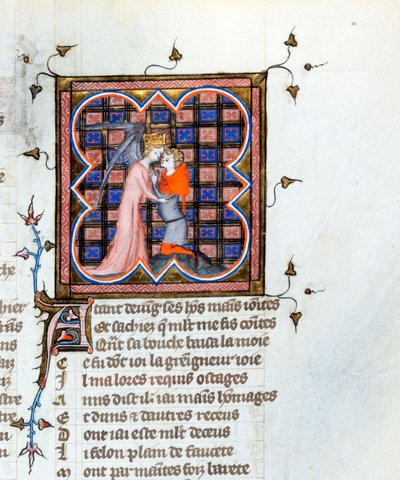 Atant deuing ses hõs mains iointes
Et sachiez q̃ mlt me fis cointes
Qñt sa bouche baisa la moie
Ce fu dõt ioi la greigneur ioie
Il ma lores requis ostages
Amis dist il iai mains homages
Et duns et dautres receus
Dont iai este mlt deceus
Li felon plain de faucete
Mont par maintes foiz barete